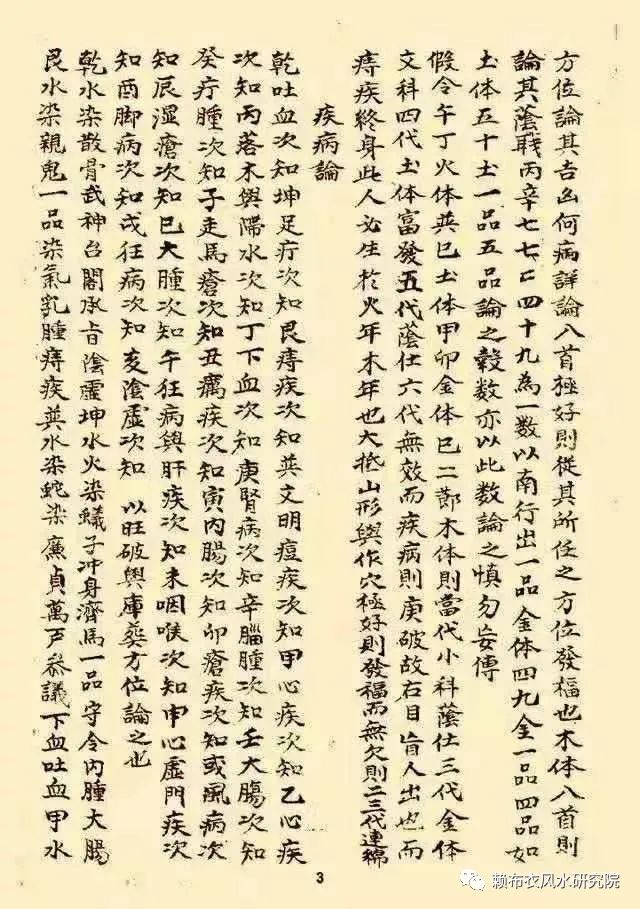 方位論其吉凶何病詳論八首極好則從其所任之方位發福也木体八首則
論其蔭職丙辛七七四十九為一数以南行出一品金体四九金一品四品如
土体五十土一品五品論之穀数亦以此数論之慎勿妄傳
假令午丁火体巽巳土体甲卯金体巳二節木体則當代小科蔭仕三代金体
文科四代土体富發五代蔭仕六代無效而疾病則庚破故右目盲人出也而
痔疾終身此人必生於火年木年也大抵山形與作穴極好則發福而無欠則二三代連綿
疾病論
乾吐血次知坤足疔次知艮痔疾次知巽文明痘疾次知甲心疾次知乙心疾
次知丙落木與陽水次知丁下血次知庚腎病次知辛腦腫次知壬大腸次知
癸疔腫次知子走馬瘡次知丑癘疾次知寅内腸次知卯瘡疾次知或風病次
知辰湿瘡次知巳大腫次知午狂病與肝疾次知未咽喉次知申心虛門疾次
知酉脚病次知戌狂病次知亥陰虛次知 以旺破與庫葬方位論之也
乾水染散骨武神台閣承旨陰虛坤水火染蟻子冲身濟馬一品守令内腫大腸
艮水染親鬼一品染氣乳腫痔疾巽水染蛇染廉貞萬戸叅議下血吐血甲水
3
赖布衣风水研究院